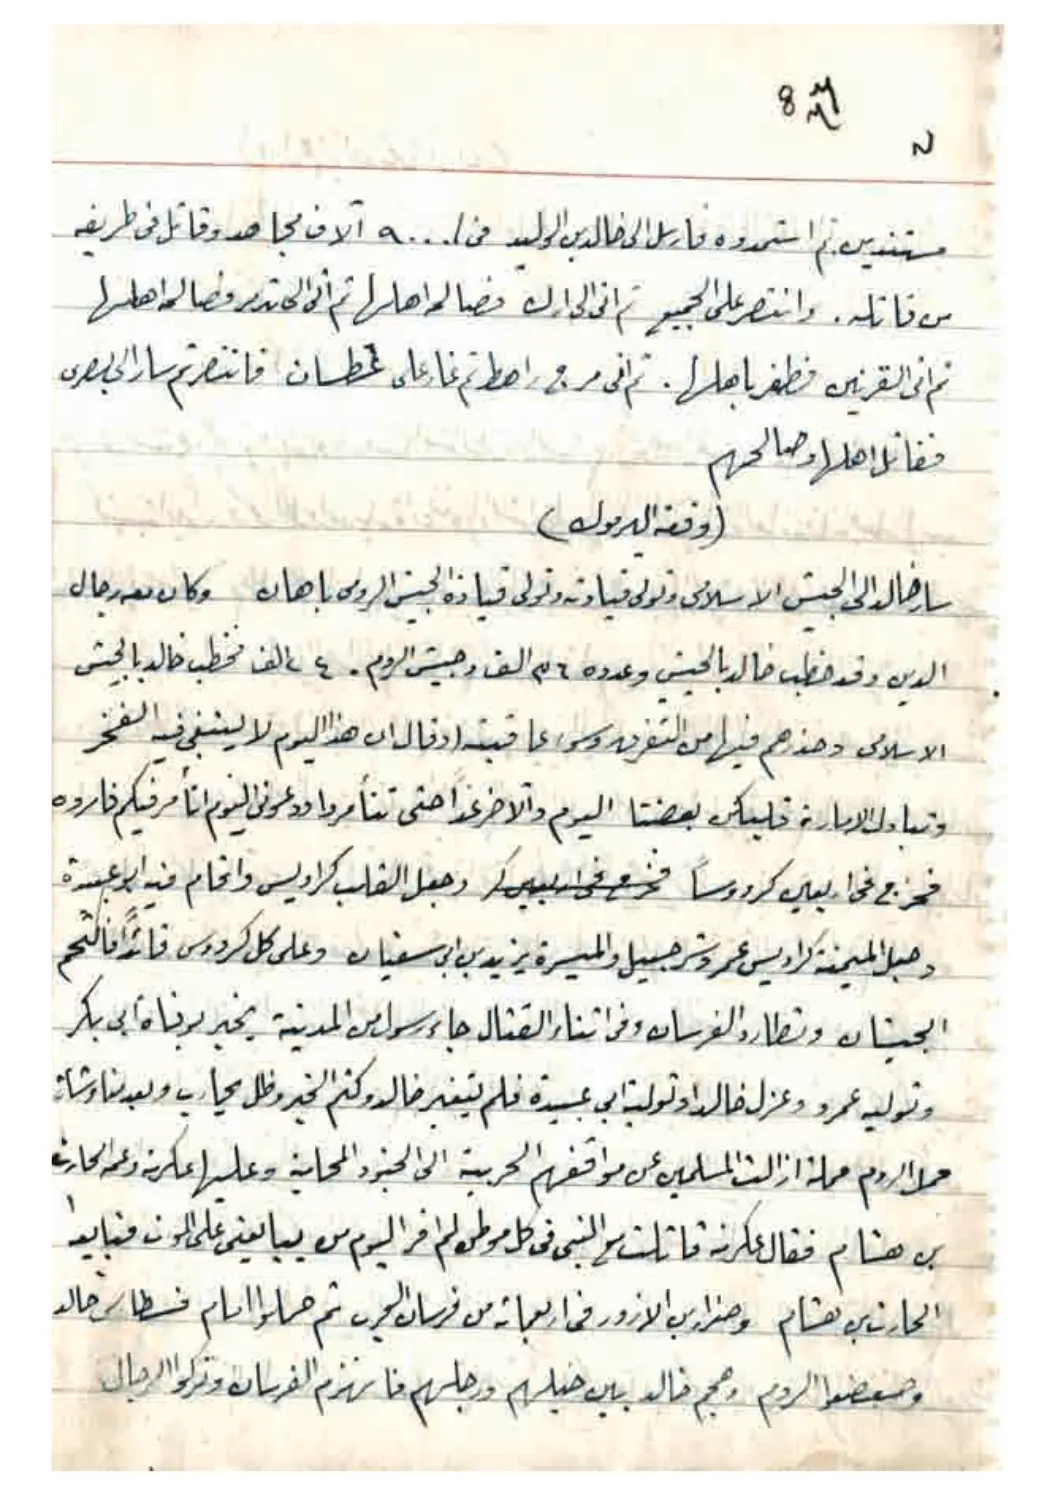 8
مستنديين ثم استمدوه فارسل الى خالد بن الوليد فى / ٩٠٠٠ آلاف مجاهد وقاتل فى طريقه
من قاتله . وانتصر على الجميع ثم اتى الى ارك فصالحه اهلها ثم اتى الى تدمر فصالحه اهلها
ثم اتى القريتين فظفر باهلها . ثم اتى مرج راهط ثم غار على غسان فانتصر ثم سار الى بصرى
فقاتل اهلها وصالحهم
(وقعة اليرموك)
سار خالد الى الجيش الاسلامى وتولى قيادته وتولى قيادة الجيش الرومى باهان وكان معه رجال
الدين وقد خطب خالد بالجيش وعدده ٣٦ الف وجيش الروم ٢٤٠ الف فخطب خالد بالجيش
الاسلامى وحذرهم فيها من التفرق وسوء عاقبته اذ قال ان هذا اليوم لا ينبغى فيه الفخر
وتبادل الامارة فليكن بعضنا اليوم والآخر غداً حتى تتأمروا ودعونى اليوم اتأمر فيكم فاروه
فخرج فى اربعين كردوساً فخرج فى اربعين كر وجعل القلب كراديس واقام فيه ابو عبيدة
وجعل الميمنة كراديس عمرو وشرحبيل والميسرة يزيد بن ابى سفيان وعلى كل كردوس قائداً فالتحم
الجيشان وتطارد الفرسان وفى اثناء القتال جاء رسول من المدينة يخبر بوفاة ابى بكر
وتوليه عمرو وعزل خالد وتولية ابى عبيدة فلم يتغير خالد وكتم الخبر وظل يحارب وبعد
حمل الروم حملة ازالت المسلمين عن مواقفهم الحربية الى الجنود المحامية وعليها عكرمة وعمه الحارث
بن هشام فقال عكرمة قاتلت مع النبى فى كل موطن ثم افر اليوم من يبايعنى على الموت فبايعه
الحارث بن هشام وضرار بن الازور فى اربعمائة من فرسان الحرب ثم حملوا امام فسطاس خالد
وضعضعوا الروم وهجم خالد بين خيلهم ورجلهم فانهزم الفرسان وتركوا الرجال